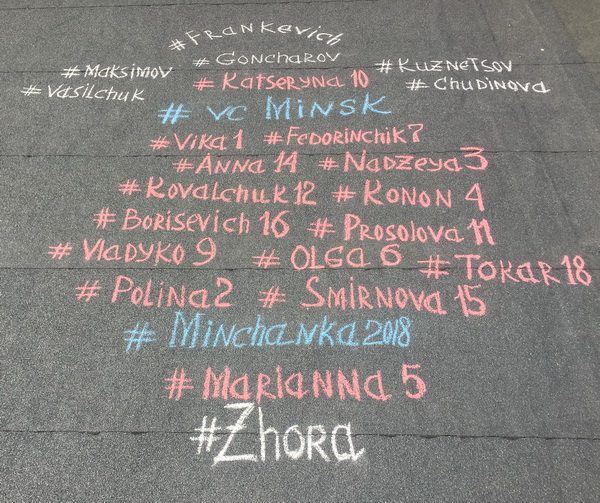 #Frankevich
#Goncharov
#Maksimov #Kuznetsov
#Vasilchuk #Katseryna 10 #Chudinova
# vc Minsk
#Vika 1 #Fedorinchik 7
#Anna 14 #Nadzeya 3
#Kovalchuk 12 #Konon 4
#Borisevich 16 #Prosolova 11
#Vladyko 9 #Olga 6 #Tokar 18
#Polina 2 #Smirnova 15
#Minchanka 2018
#Marianna 5
#Zhora